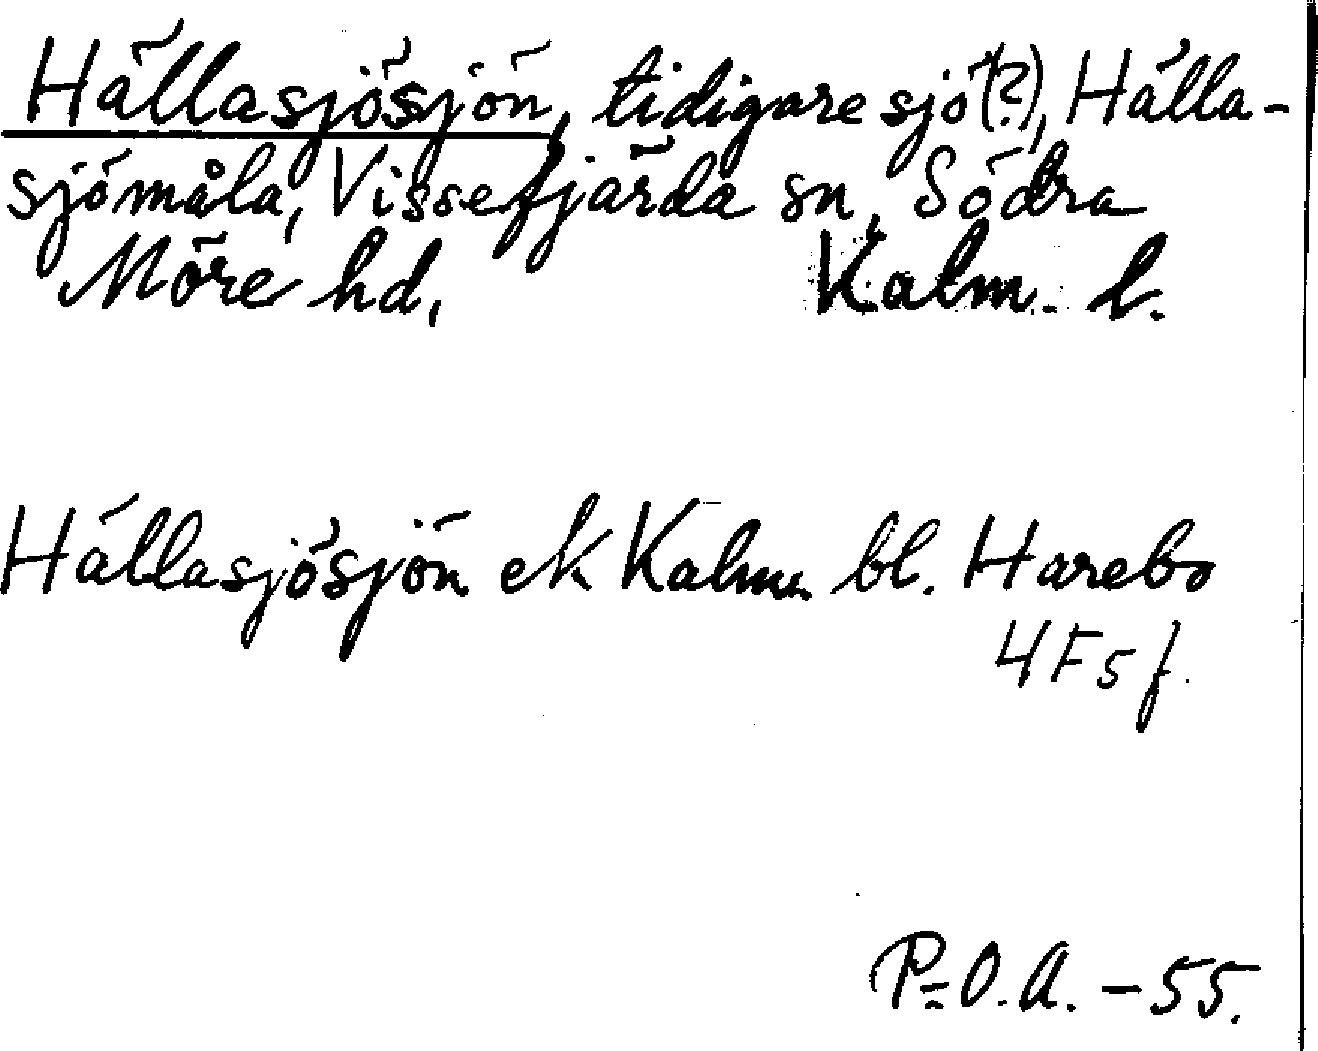 Hällasjösjön, tidigare sjö(?), Hälla-
sjömåla, Vissefjärda sn, Södra
Möre hd, Kalm. l.
Hällasjösjön ek Kalm. bl. Harebo
4F5f.
P-O.A. - 55.